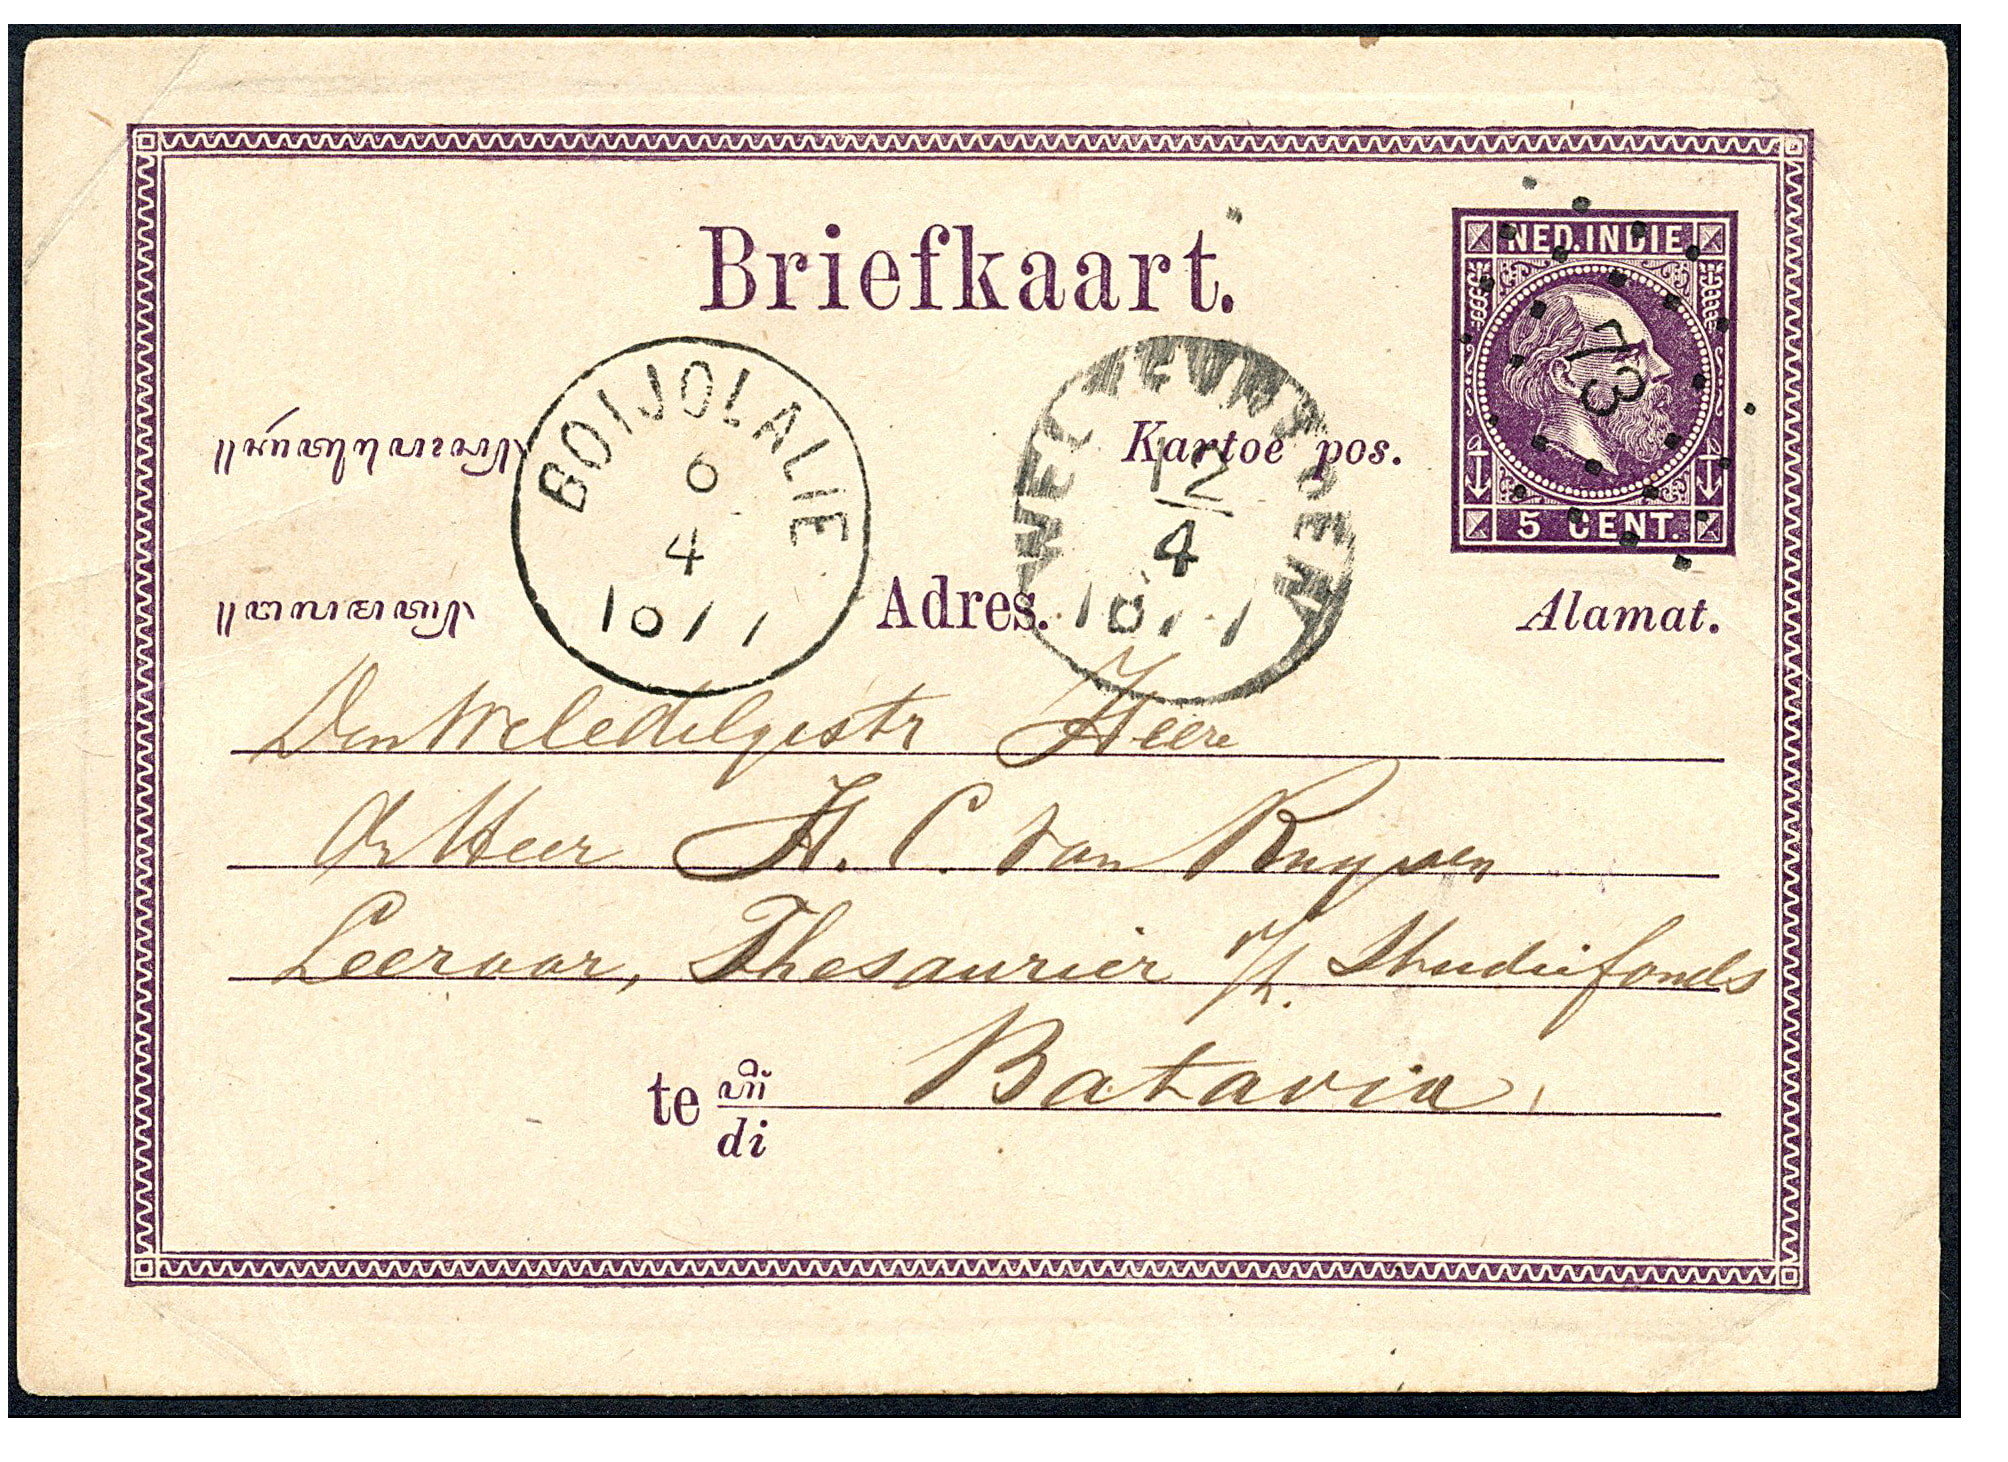 Briefkaart.
NED. INDIE
73
5 CENT.
BOIJOLALIE
6
4
1877
WELTEVREDEN
12
4
1877
Kartoe pos.
Adres.
Alamat.
Den Weledelgestr Heere
den Heer H. C. van Ruyven
Leeraar, Thesaurier v/h. Studiefonds
te
di
Batavia